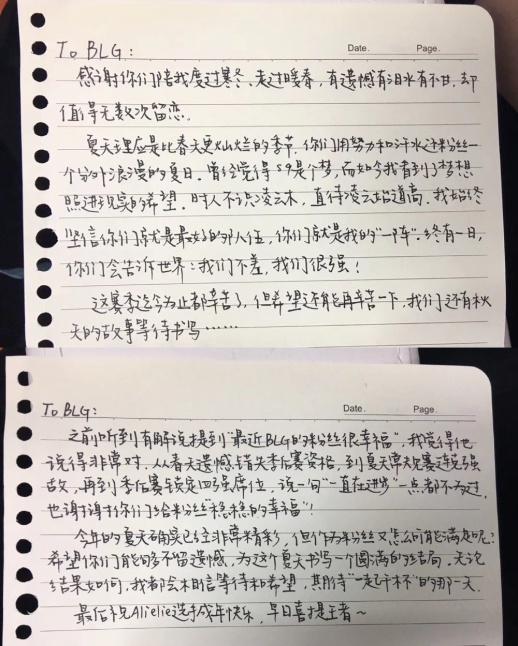 To BLG:
Date.
Page.
感谢你们陪我度过寒冬、走过暖春，有遗憾有泪水有不甘，却
值得无数次留恋.
夏天理应是比春天更灿烂的季节，你们用努力和汗水还粉丝一
个分外浪漫的夏日。曾经觉得S9是个梦，而如今我看到了梦想
照进现实的希望。时人不识凌云木，直待凌云始道高。我始终
坚信你们就是最好的队伍，你们就是我的“一阵”。终有一日，
你们会告诉世界：我们不差，我们很强！
这赛季迄今为止都辛苦了，但希望还能再辛苦一下，我们还有秋
天的故事等待书写……
To BLG:
Date.
Page.
之前听到有解说提到“最近BLG的粉丝很幸福”，我觉得他
说得非常对。从春天遗憾错失季后赛资格，到夏天常规赛连克强
敌，再到季后赛锁定四强席位，说一句“一直在进步”一点都不为过，
也谢谢你们给粉丝“稳稳的幸福”！
今年的夏天确实已经非常精彩，但作为粉丝又怎么可能满足呢？
希望你们能够不留遗憾，为这个夏天书写一个圆满的结局，无论
结果如何，我都会相信等待和希望，期待“一起干杯”的那一天.
最后祝Alielie选手成年快乐，早日喜提王者~